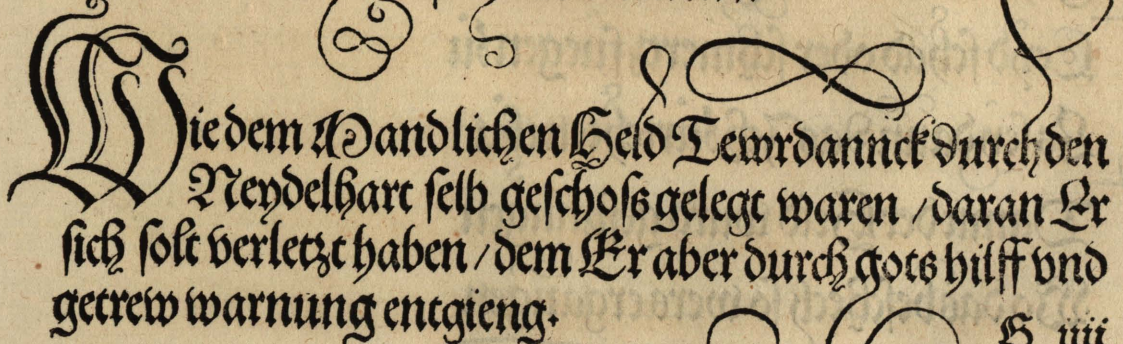 Wie dem Mandlichen Held Tewrdannck durch den
Neydelhart selb geschoss gelegt waren / daran Er
sich solt verletzt haben / dem Er aber durch gots hilff vnd
getrew warnung entgieng.
G iiii